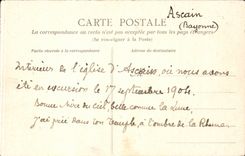 Ascain
(Bayonne)
CARTE POSTALE
La correspondance au recto n'est pas acceptée par tous les pays étrangers
(Se renseigner à la Poste)
Partie réservée à la correspondance
Adresse du destinataire
Intérieur de l'église d'Ascain, où nous avons
été en excursion le 17 septembre 1904.
Bonne Mère du ciel, belle comme la Lune,
J'ai prié dans ton Temple à l'ombre de la Rhune